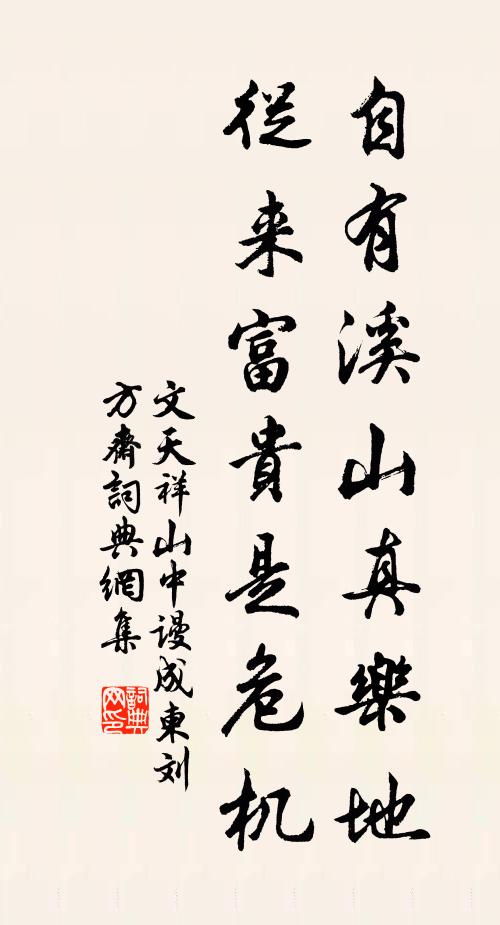 自有溪山真樂地
從来富貴是危机
文天祥山中谩成東刘
方齋詞典網集
詞典
网印